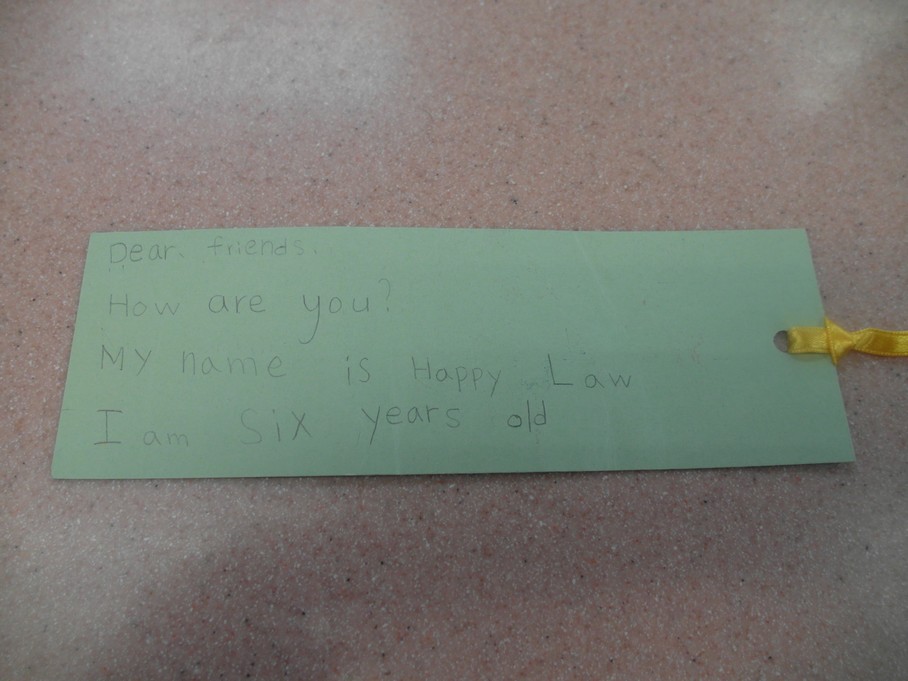 Dear. friends.
How are you?
My name is Happy Law
I am Six years old